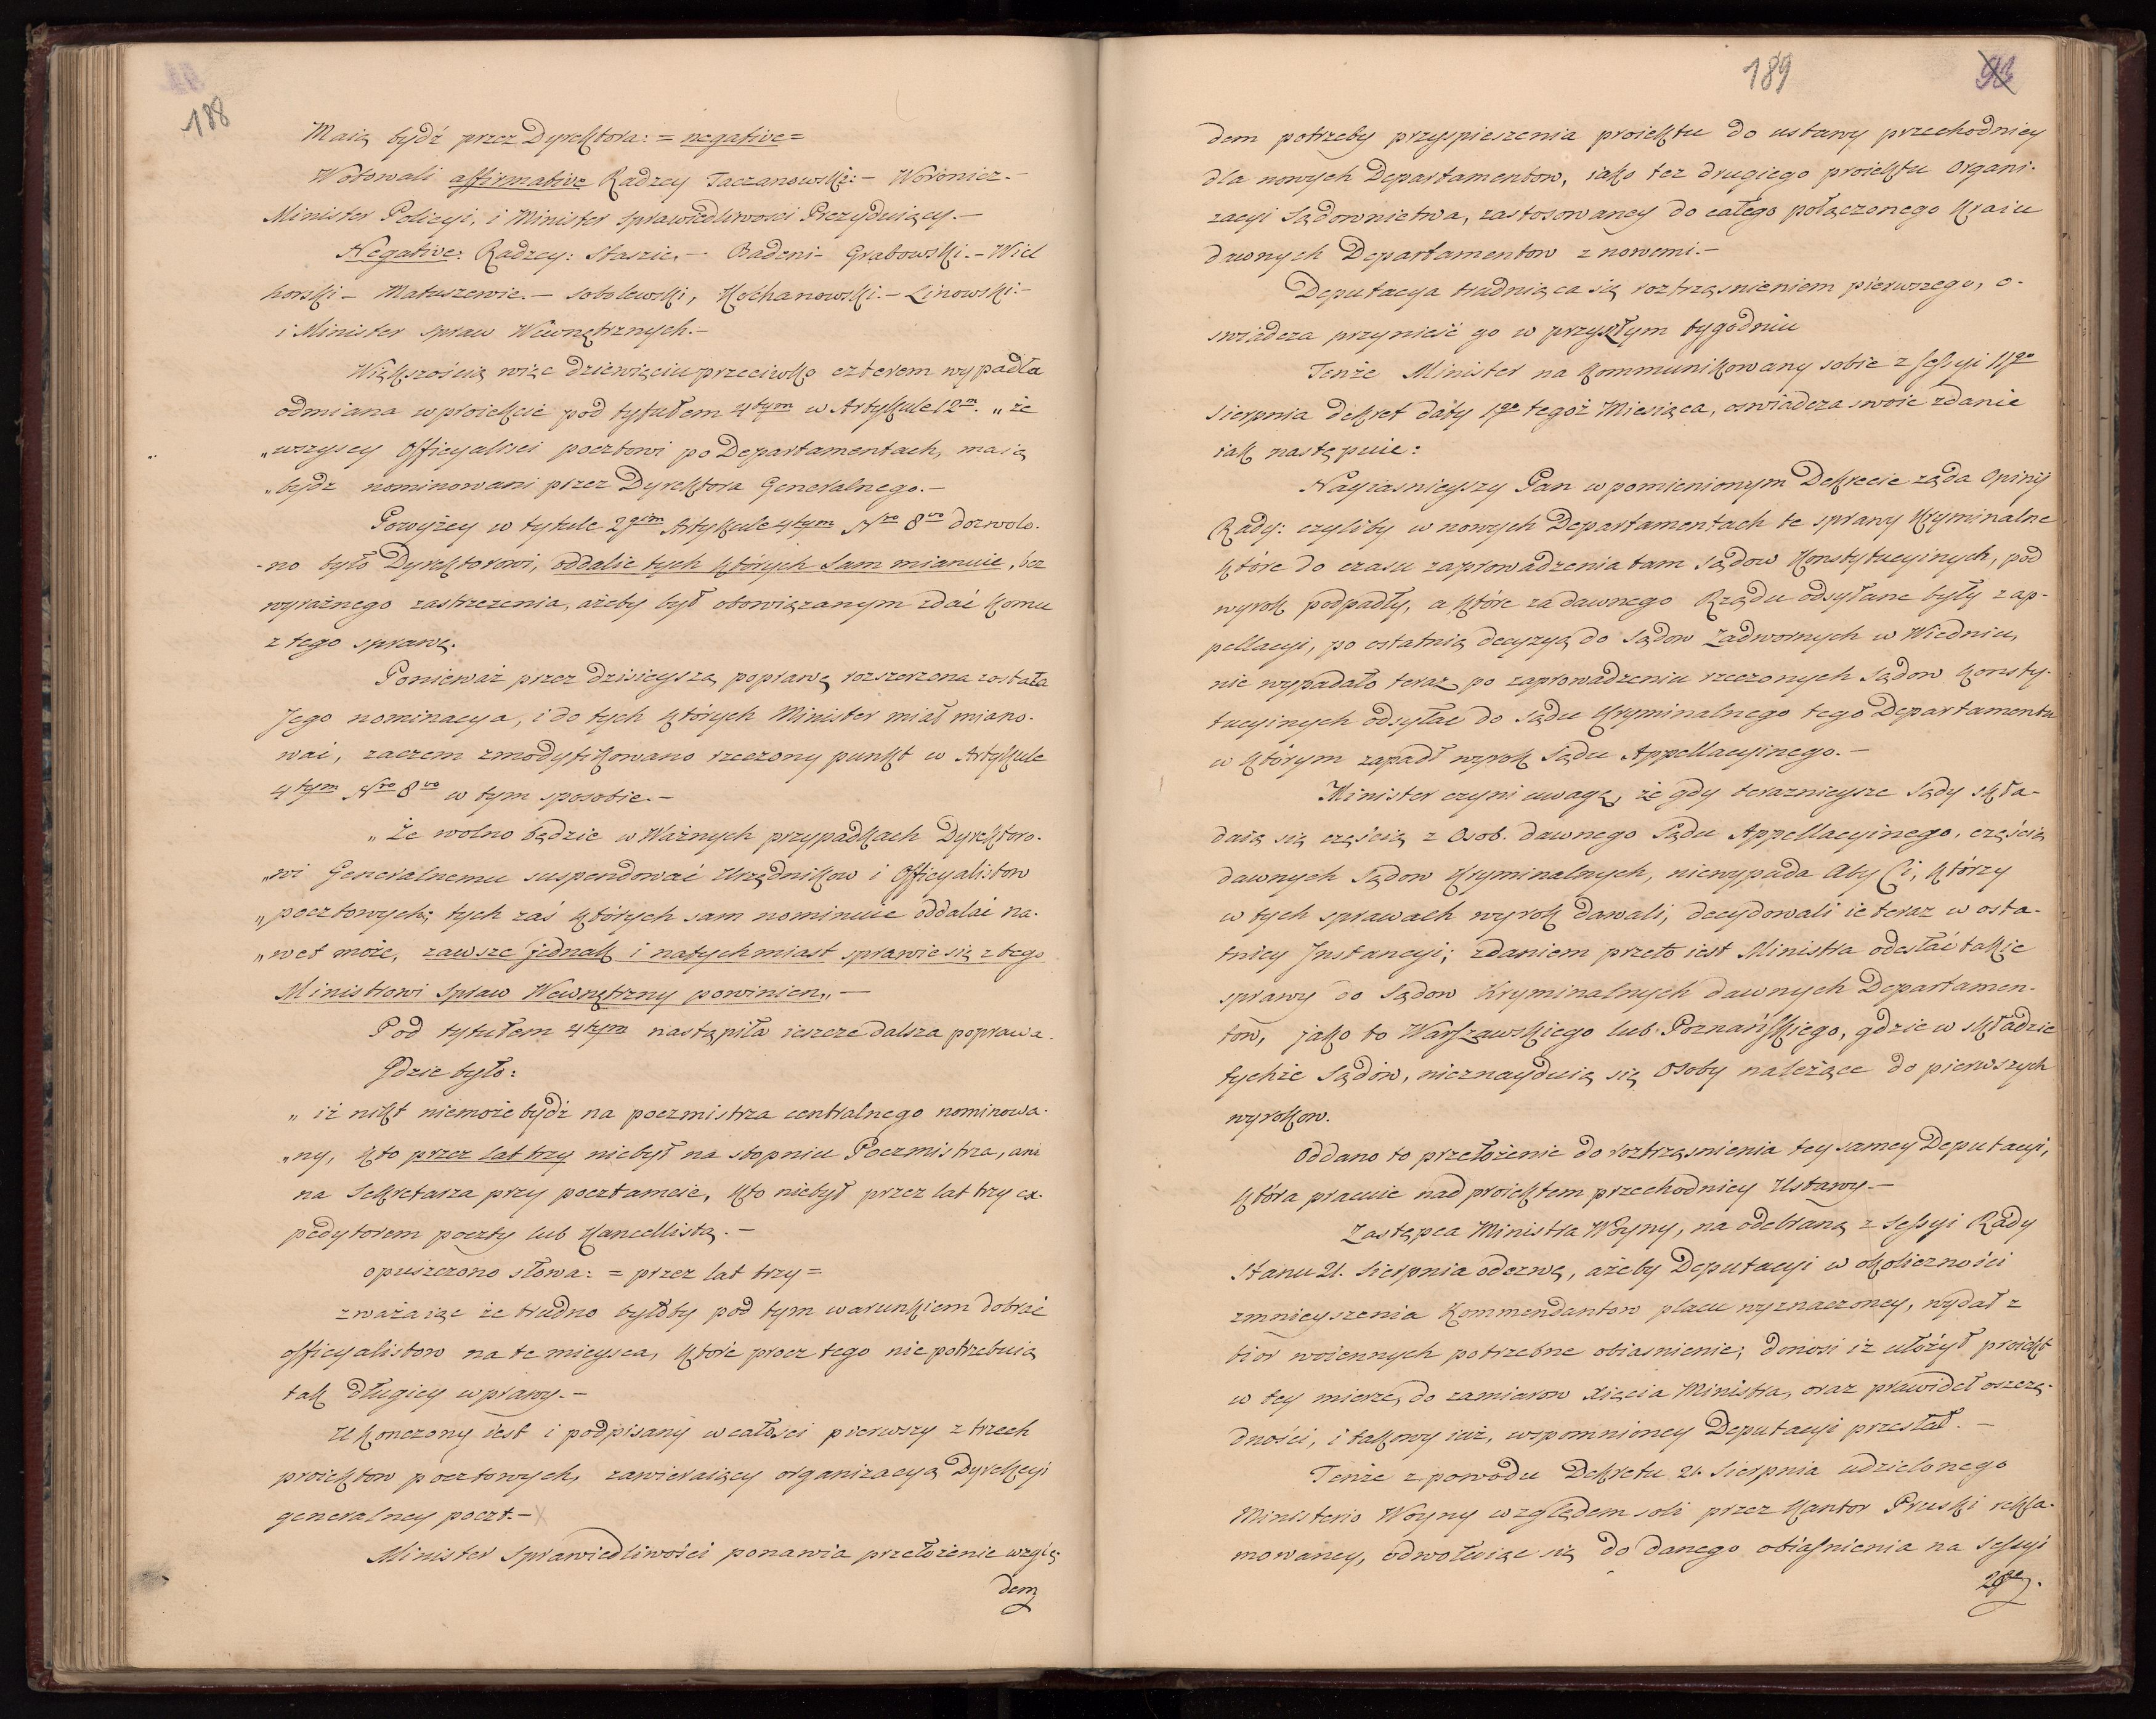 188
Maią bydź przez Dyrektora: = negative =
Wotowali affirmative Radzcy Taczanowski: – Woronicz. –
Minister Policyi, i Minister sprawiedliwosci Prezyduiący. –
Negative: Radzcy: Staszic, – Badeni – Grabowski. – Wiel
horski – Matuszewic. – Sobolewski, Kochanowski. – Linowski: –
i Minister spraw Wewnętrznych. –
Większością więc dziewięciu przeciwko czterem wypadła
odmiana w proiekcie pod tytułem 4tym w Artykule 12m. „ że
„wszyscy Officyalisci pocztowi po Departamentach, maią
„bydz nominowani przez Dyrektora Generalnego. –
Powyżey w tytule 2gim Artykule 4tym Nro 8vo dozwolo-
-no było Dyrektorowi, oddalic tych których sam mianuie, bez
wyraźnego zastrzeżenia, ażeby był obowiązanym zdać komu
z tego sprawę.
Ponieważ przez dzisieyszą poprawę rozszerzona została
Jego nominacya, i do tych których Minister miał miano-
wać, zaczem zmodyfikowano rzeczony punkt w Artykule
4tym Nro 8vo w tym sposobie. –
„ Że wolno będzie w Ważnych przypadkach Dyrektoro-
„wi Generalnemu suspendować Urzędnikow i Officyalistow
„pocztowych; tych zaś których sam nominuie oddalać na-
„wet może, zawsze jednak i natychmiast sprawie się z tego
Ministrowi spraw Wewnętrzny powinien„ –
Pod tytułem 4tym nastąpiła ieszcze dalsza poprawa.
Gdzie było:
„ iż nikt niemoże bydź na poczmistrza centralnego nominowa-
„ny, kto przez lat trzy niebył na stopniu Poczmistrza, ani
na Sekretarza przy pocztamcie, kto niebył przez lat trzy ex-
pedytorem poczty lub Kancellistą. –
opuszczono słowa: = przez lat trzy =
zważaiąc że trudno byłoby pod tym warunkiem dobrać
officyalistow na te mieysca, które procz tego nie potrzebuią
tak długiey wprawy. –
Ukonczony iest i podpisany w całosci pierwszy z trzech
proiektow pocztowych, zawieraiący organizacyą Dyrekcyi
generalney poczt. – X
Minister Sprawiedliwości ponawia przełożenie wzglę-
dem
189
dem potrzeby przyspieszenia proiektu do ustawy przechodniey
dla nowych Departamentow, iako też drugiego proiektu Organi-
zacyi Sądownictwa, zastosowaney do całego połączonego Kraiu
dawnych Departamentow z nowemi. –
Deputacya trudniąca się roztrząsnieniem pierwszego, o-
swiadcza przynieść go w przyszłym tygodniu
Tenże Minister na kommunikowany sobie z sessyi 11go
Sierpnia dekret daty 1go tegoż Miesiąca, oswiadcza swoie zdanie
iak następuie:
Nayiasnieyszy Pan w pomienionym Dekrecie żąda Opinij
Rady: czyliby w nowych Departamentach te sprawy Kryminalne
które do czasu zaprowadzenia tam Sądow Konstytucyinych, pod
wyrok podpadły, a które za dawnego Rządu odsyłane były z ap-
pellacyi, po ostatnią decyzyą do Sądow Zadwornych w Wiedniu,
nie wypadało teraz po zaprowadzeniu rzeczonych Sądow Konsty-
tucyinych odsyłac do Sądu Kryminalnego tego Departamentu
w którym zapadł wyrok Sądu Appellacyinego. –
Minister czyni uwagę, że gdy terazniejsze Sądy skła-
daią się częścią z Osob. dawnego Sądu Appellacyinego, częścią
dawnych Sądow Kryminalnych, niewypada Aby Ci, którzy
w tych sprawach wyrok dawali, decydowali ie teraz w osta-
tniey Instancyi; zdaniem przeto iest Ministra odesłać takie
sprawy do Sądow Kryminalnych dawnych Departamen-
tow, jako to Warszawskiego lub Poznańskiego, gdzie w składzie
tychże Sądów, nieznayduią się Osoby należące do pierwszych
wyrokow.
Oddano to przełożenie do roztrząsnienia tey samey Deputacyi,
która pracuie nad proiektem przechodniey Ustawy. –
Zastępca Ministra Woyny, na odebraną z Sessyi Rady
Stanu 21. Sierpnia odezwę, ażeby Deputacyi w okoliczności
zmnieyszenia Kommendantow placu wyznaczoney, wydał z
biór woiennych potrzebne obiasnienie; donosi iż ułożył proiekt
w tey mierze, do zamiarow Xięcia Ministra, oraz prawideł oszczę-
dności, i takowy iuż, wspomnioney Deputacyi przesłał. –
Tenże z powodu Dekretu 21. Sierpnia udzielonego
Ministerio Woyny względem soli przez Kantor Pruski rekla-
mowaney, odwołuiąc się do danego obiaśnienia na Sessyi